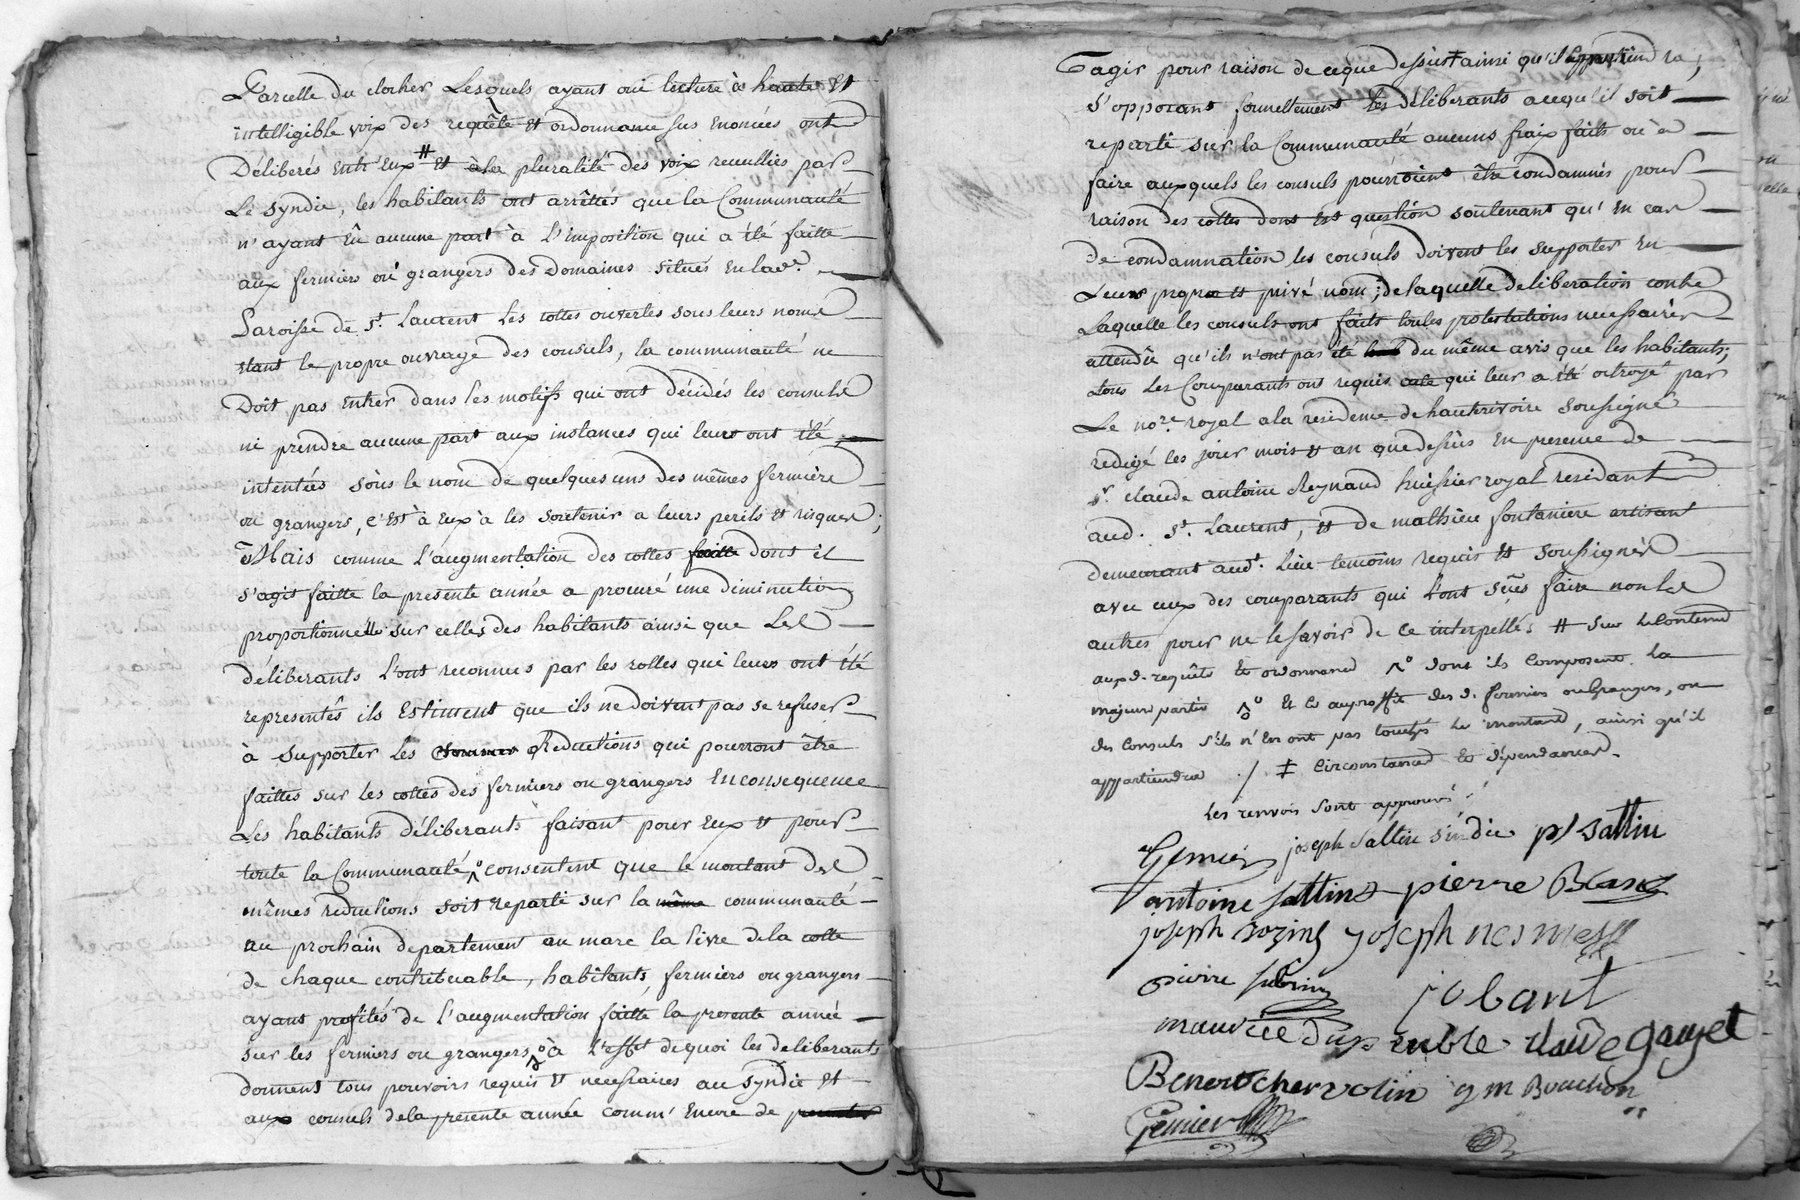 Parcelle du clocher Lesquels ayant oui lecture à haute et
intelligible voix des requête et ordonnance sus Enoncées ont
Déliberés Entr'Eux # et à la pluralité des voix recueillies par
Le syndic, les habitants ont arrêtés que la Communauté
n'ayant Eû aucune part à L'imposition qui a été faitte
aux fermiers ou grangers des Domaines situés En lad.e
Paroisse de S.t Laurent Les cottes ouvertes sous leurs noms
étant le propre ouvrage des consuls, la communauté ne
Doit pas Entrer dans les motifs qui ont décidés les consuls
ni prendre aucune part aux instances qui leurs ont été
intentées sous le nom de quelques uns des mêmes fermiers
ou grangers, c'Est à Eux à les soutenir a leurs perils et risques;
Mais comme L'augmentation des cottes faitte dont il
s'agit faitte la presente année a procuré une diminution
proportionnelle sur celles des habitants ainsi que Les
déliberants L'ont reconnus par les rolles qui leurs ont été
representés ils Estiment que ils ne doivent pas se refuser
à supporter les Reductions qui pourront être
faittes sur les cottes des fermiers ou grangers En consequence
Les habitants déliberants faisant pour Eux et pour
toute la Communauté consentent que le montant des
mêmes reductions soit reparti sur la même communauté
au prochain departement au marc la livre de la cotte
de chaque contribuable, habitants, fermiers ou grangers
ayant profités de L'augmentation faitte la presente année
sur les fermiers ou grangers à L'effet de quoi les deliberants
donnent tous pouvoirs requis et necessaires au syndic et
aux consuls de la presente année comm' Encore de
agir pour raison de ce que dessus ‡ ainsi qu'il appartiendra;
S'opposant formellement les déliberants a ce qu'il soit
reparti sur la Communauté aucuns fraix faits ou à
faire auxquels les consuls pourroient être condamnés pour
raison des cottes dont Est question soutenant qu'En cas
de condamnation les consuls doivent les supporter En
Leurs propre et privé nom; de laquelle deliberation contre
Laquelle les consuls ont faits toutes protestations necessaires
attendû qu'ils n'ont pas été du même avis que les habitants;
tous Les Comparants ont requis acte qui leur a été octroyé par
Le no.re royal a la residence de hauterivoire soussigné
redigé les jour mois et an que dessus En presence de
S.r claude antoine Reynaud huissier royal residant
aud. S.t Laurent, et de mathieu fontaniere artisant
demeurant aud.t Lieu temoins requis et soussignés
avec ceux des comparants qui L'ont sçus faire non les
autres pour ne le savoir de ce interpellés # sur le Contenu
aux d. requête et ordonnance ^o dont ils composent la
majeure partie ^o Et ce auproffit des d. fermiers ou Grangers, ou
des Consuls s'ils n'En ont pas touchés le montant, ainsi qu'il
appartiendra ./. ‡ Circonstances et dépendances.
Les renvois sont approuvés
joseph Sattin sindic p/ Sattin
antoine Sattin pierre Blanc
joseph joseph nesmes
pierre jobant
claude
Benoit chervolin g m Bouchon